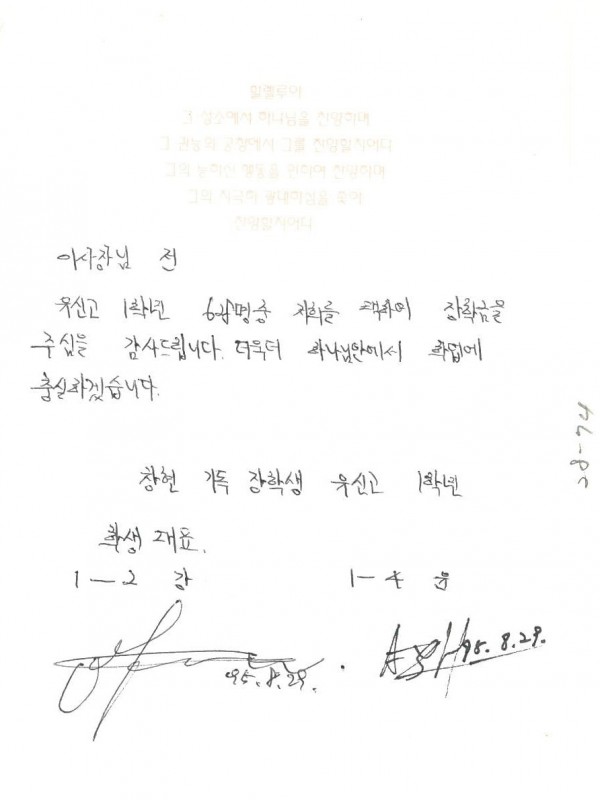 할렐루야
그 성소에서 하나님을 찬양하며
그 권능의 궁창에서 그를 찬양할지어다
그의 능하신 행동을 인하여 찬양하며
그의 지극히 광대하심을 좇아
찬양할지어다
이사장님 전
우신고 1학년 명중 저희를 택하여 장학금을
주심을 감사드립니다. 더욱더 하나님안에서 학업에
충실하겠습니다.
창현 기독 장학생 우신고 1학년
학생 대표.
1-2 강
1-4 윤
95.8.29.
95.8.29.
28-74